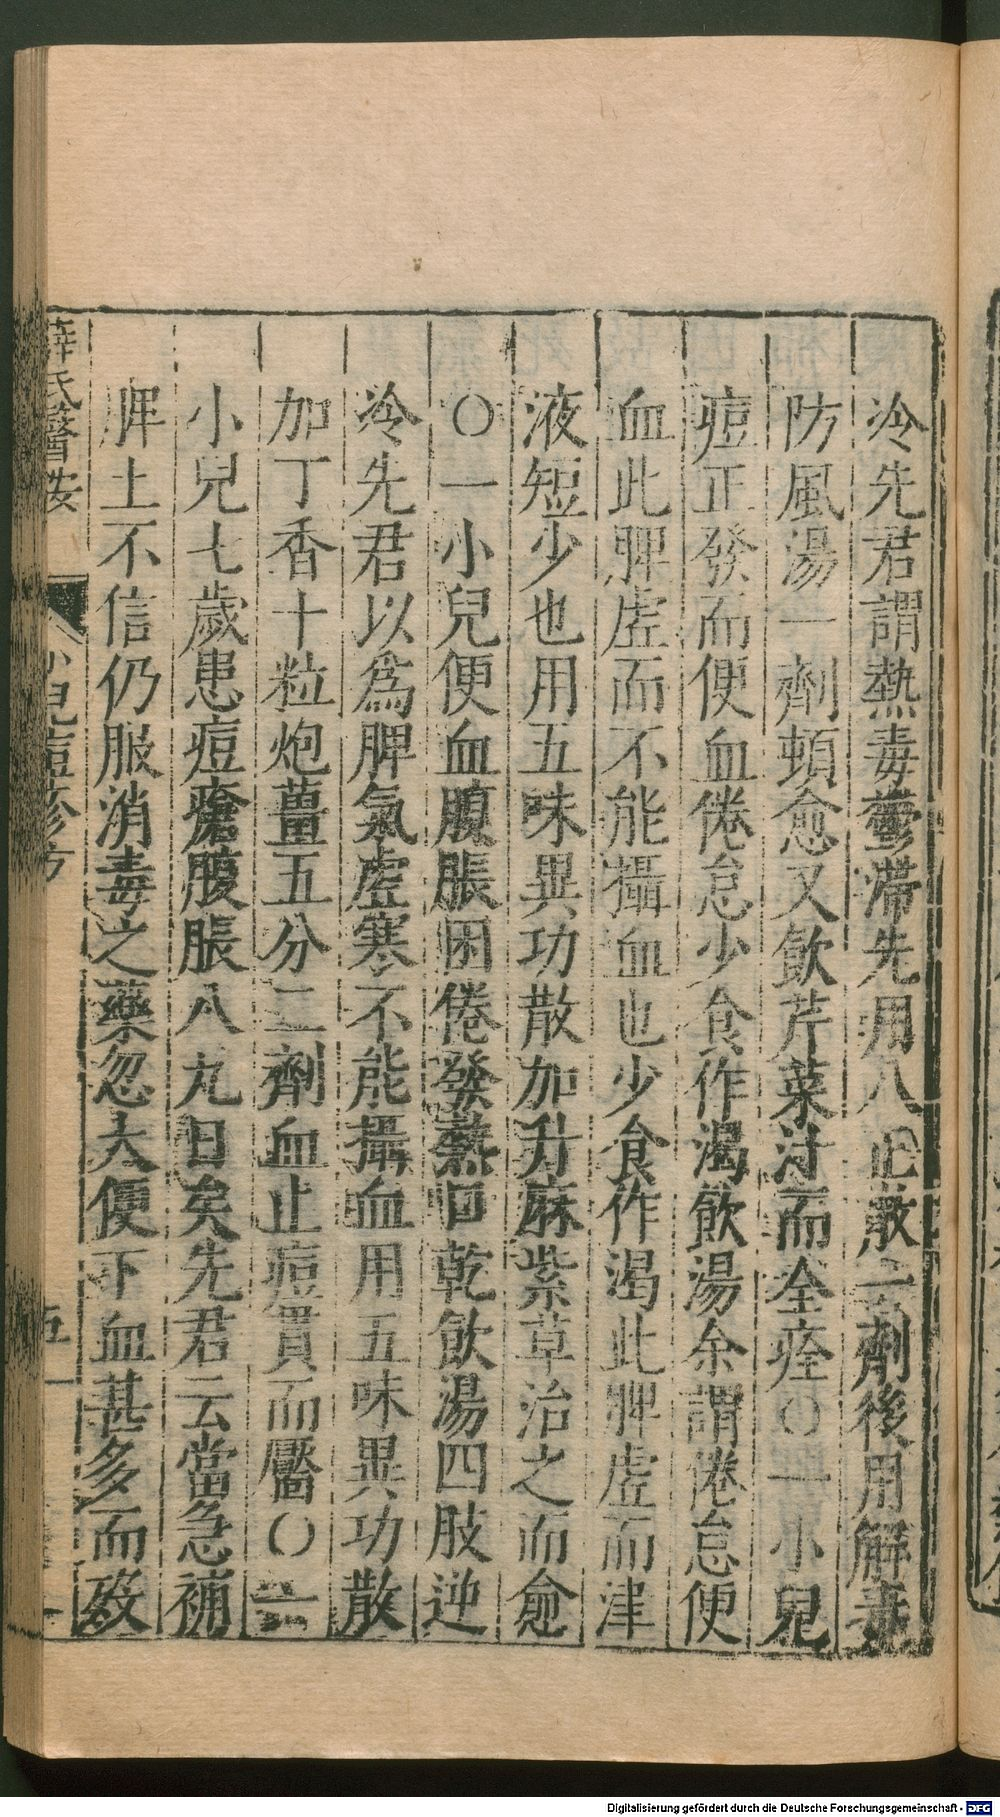 冷先君謂熱毒鬱滯先用八正散二劑後用解毒
防風湯一劑頓愈又飲芹菜汁而全痊〇一小兒
痘正發而便血倦怠少食作渴飲湯余謂倦怠便
血此脾虛而不能攝血也少食作渴此脾虛而津
液短少也用五味異功散加升麻紫草治之而愈
〇一小兒便血腹脹困倦發熱口乾飲湯四肢逆
冷先君以爲脾氣虛寒不能攝血用五味異功散
加丁香十粒炮薑五分二劑血止痘貫而靨〇一
小兒七歲患痘瘡腹脹八九日矣先君云當急補
脾土不信仍服消毒之藥忽大便下血甚多而歿
薛氏醫按
小兒痘疹方
五
Digitalisierung gefördert durch die Deutsche Forschungsgemeinschaft - DFG